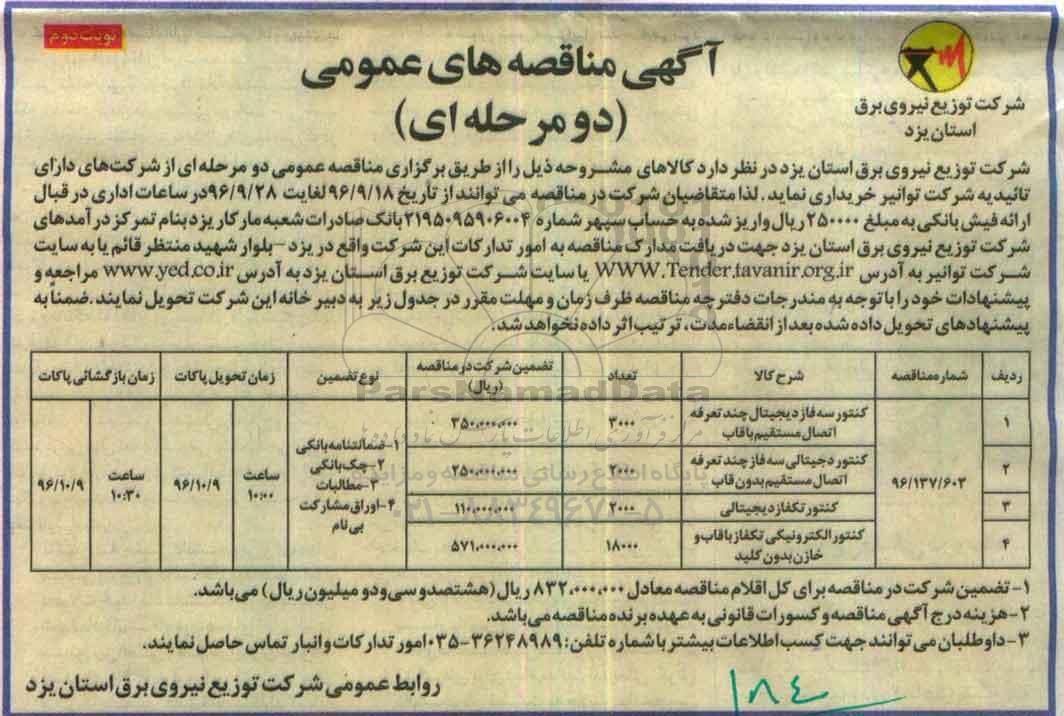 نوبت دوم
شرکت توزیع نیروی برق
استان یزد
آگهی مناقصه های عمومی
(دو مرحله ای)
شرکت توزیع نیروی برق استان یزد در نظر دارد کالاهای مشروحه ذیل را از طریق برگزاری مناقصه عمومی دو مرحله ای از شرکت‌های دارای
تائیدیه شرکت توانیر خریداری نماید. لذا متقاضیان شرکت در مناقصه می توانند از تاریخ ۹۶/۹/۱۸ لغایت ۹۶/۹/۲۸ در ساعات اداری در قبال
ارائه فیش بانکی به مبلغ ۲۵۰۰۰۰ ریال واریز شده به حساب سپهر شماره ۲۱۹۵۰۹۵۹۰۶۰۰۴ بانک صادرات شعبه مارکار یزد بنام تمرکز درآمدهای
شرکت توزیع نیروی برق استان یزد جهت دریافت مدارک مناقصه به امور تدارکات این شرکت واقع در یزد - بلوار شهید منتظر قائم یا به سایت
شرکت توانیر به آدرس WWW.Tender.tavanir.org.ir یا سایت شرکت توزیع برق استان یزد به آدرس www.yed.co.ir مراجعه و
پیشنهادات خود را با توجه به مندرجات دفترچه مناقصه ظرف زمان و مهلت مقرر در جدول زیر به دبیر خانه این شرکت تحویل نمایند. ضمناً به
پیشنهادهای تحویل داده شده بعد از انقضاء مدت، ترتیب اثر داده نخواهد شد.
ردیف شماره مناقصه شرح کالا تعداد تضمین شرکت در مناقصه (ریال) نوع تضمین زمان تحویل پاکات زمان بازگشائی پاکات
۱ کنتور سه فاز دیجیتال چند تعرفه اتصال مستقیم با قاب ۳۰۰۰ ۳۵۰،۰۰۰،۰۰۰
۲ کنتور دجیتالی سه فاز چند تعرفه اتصال مستقیم بدون قاب ۲۰۰۰ ۲۵۰،۰۰۰،۰۰۰
۳ کنتور تکفاز دیجیتالی ۲۰۰۰ ۱۱۰،۰۰۰،۰۰۰
۴ کنتور الکترونیکی تکفاز با قاب و خازن بدون کلید ۱۸۰۰۰ ۵۷۱،۰۰۰،۰۰۰
۹۶/۱۳۷/۶۰۲
۱-ضمانتنامه بانکی
۲-چک بانکی
۳-مطالبات
۴-اوراق مشارکت
بی نام
ساعت ۱۰:۰۰ ۹۶/۱۰/۹
ساعت ۱۰:۳۰ ۹۶/۱۰/۹
ParsNamadData
پایگاه اطلاع رسانی مناقصه و مزایده
۰۲۱-۸۸۳۴۹۶۷۰-۵
۱- تضمین شرکت در مناقصه برای کل اقلام مناقصه معادل ۸۳۲،۰۰۰،۰۰۰ ریال (هشتصد و سی و دو میلیون ریال) می‌باشد.
۲-هزینه درج آگهی مناقصه و کسورات قانونی به عهده برنده مناقصه می‌باشد.
۳-داوطلبان می توانند جهت کسب اطلاعات بیشتر با شماره تلفن: ۳۶۲۴۸۹۸۹-۰۳۵ امور تدارکات و انبار تماس حاصل نمایند.
روابط عمومی شرکت توزیع نیروی برق استان یزد
۱۰۸۴